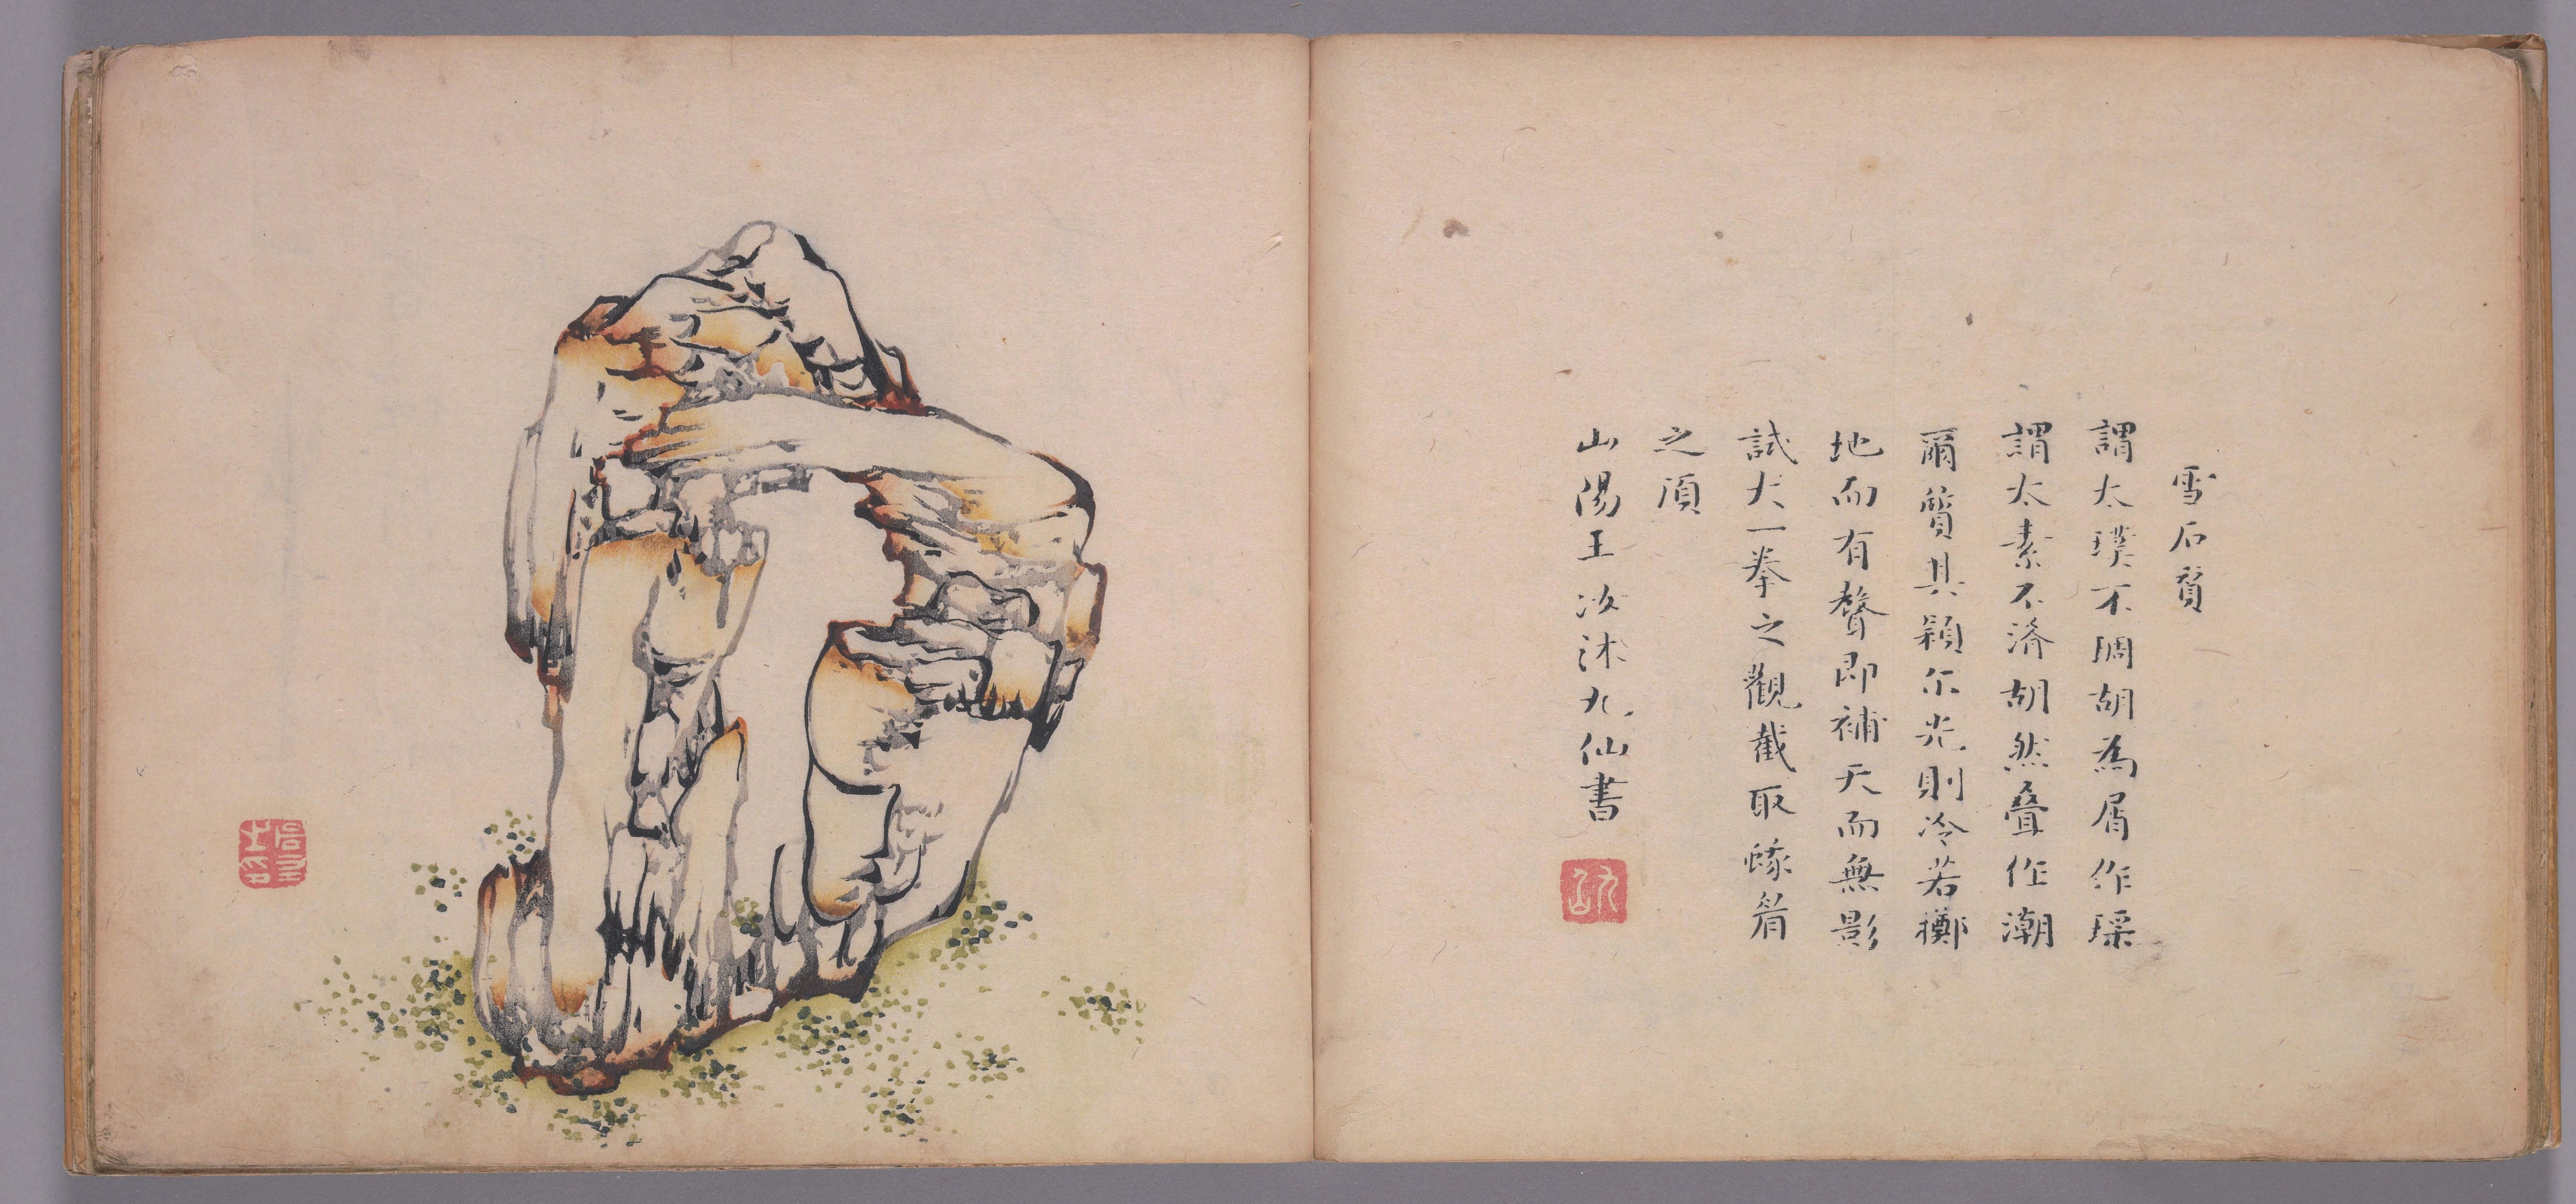 雪石
謂太璞不琱胡為屑作琛
謂太素不濟胡然疊作潮
爾質其穎尒光則冷若擲
地而有聲即補天而無影
試大一拳之觀截取蛾眉
之頂
山陽王汝沐九仙書